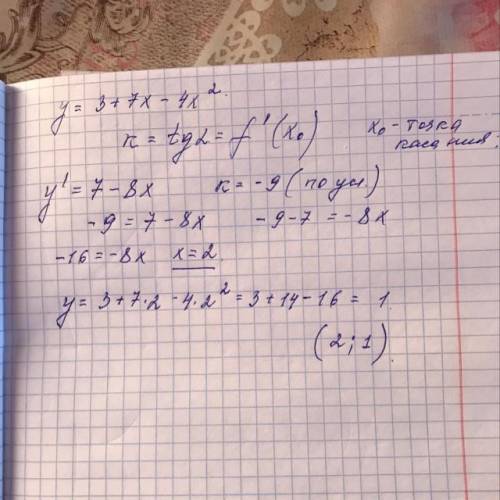 y = 3 + 7x - 4x².
k = tgα = f'(x₀) x₀ - точка
касания.
y' = 7 - 8x k = -9 (по усл)
-9 = 7 - 8x -9 - 7 = -8x
-16 = -8x x = 2
y = 3 + 7·2 - 4·2² = 3 + 14 - 16 = 1
(2; 1).